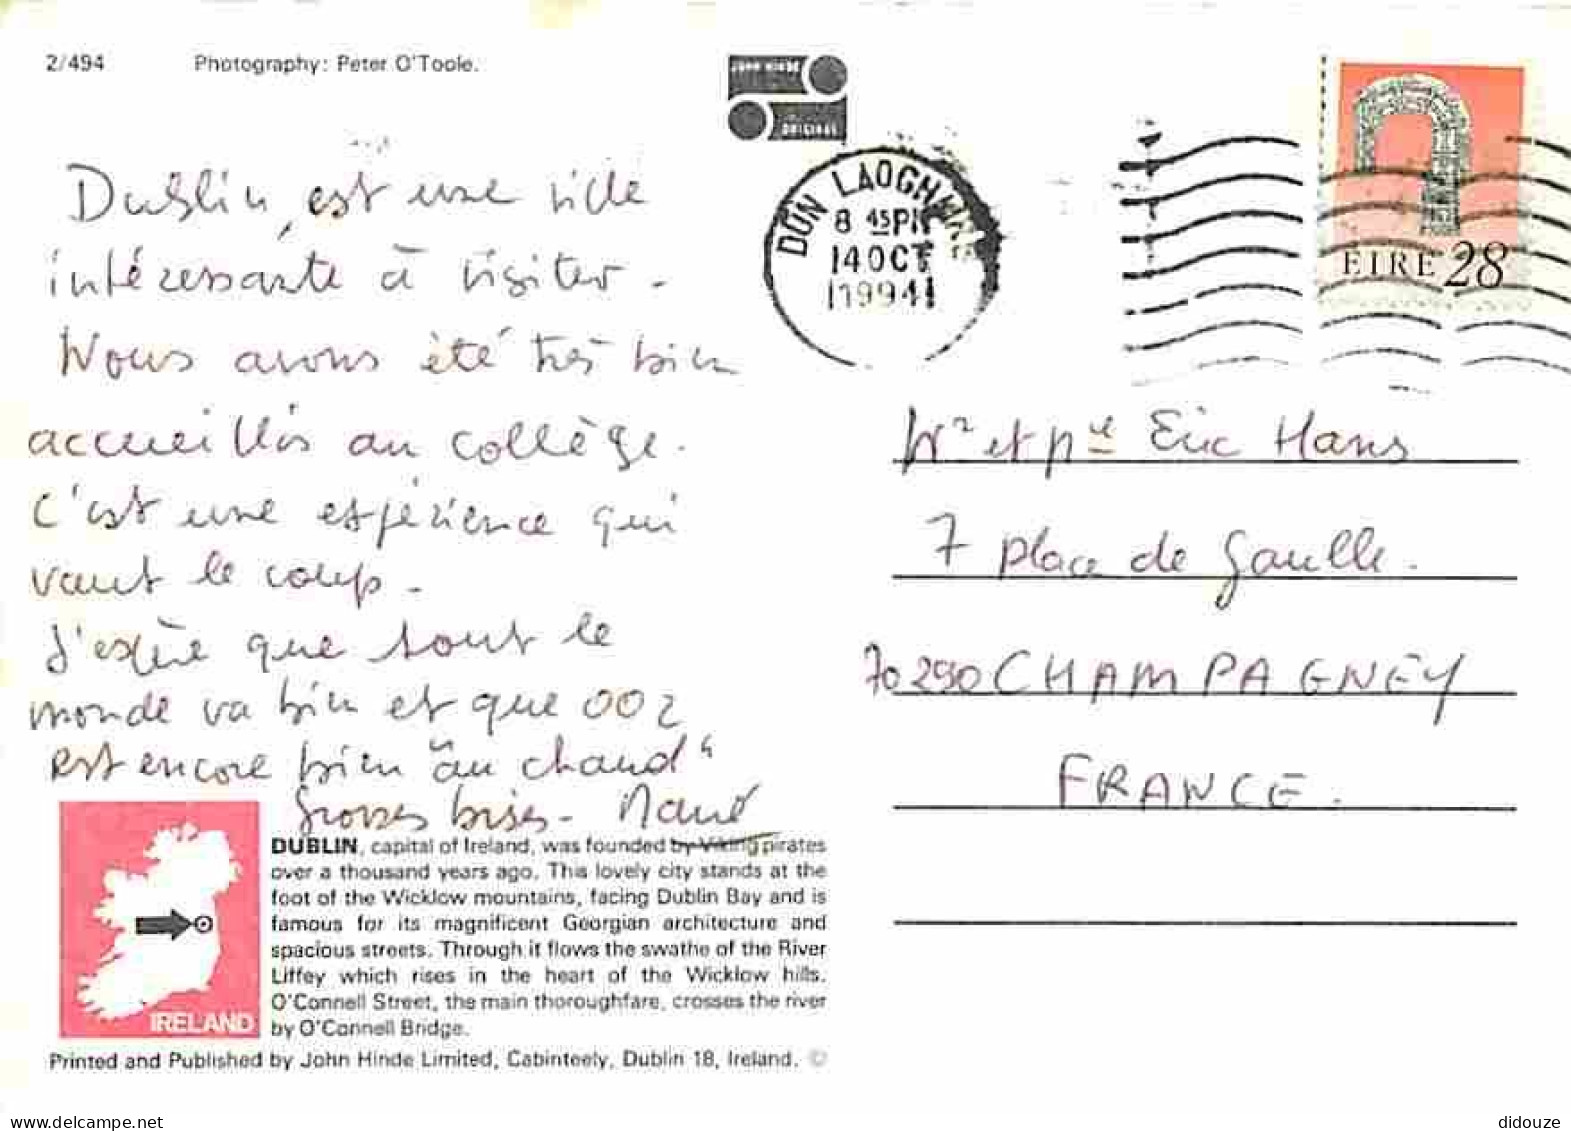 2/494 Photography: Peter O'Toole.
JOHN HINDE
ORIGINAL
DÚN LAOGHAIRE
8 45 PM
14 OCT
1994
EIRE 28
Dublin est une ville
intéressante à visiter.
Nous avons été très bien
accueillis au collège.
C'est une expérience qui
vaut le coup.
J'espère que tout le
monde va bien et que
est encore bien "au chaud"
Grosses bises.
Mr et Eric Hans
7 place de Gaulle.
70290 CHAMPAGNEY
FRANCE.
DUBLIN, capital of Ireland, was founded by Viking pirates
over a thousand years ago. This lovely city stands at the
foot of the Wicklow mountains, facing Dublin Bay and is
famous for its magnificent Georgian architecture and
spacious streets. Through it flows the swathe of the River
Liffey which rises in the heart of the Wicklow hills.
O'Connell Street, the main thoroughfare, crosses the river
by O'Connell Bridge.
IRELAND
Printed and Published by John Hinde Limited, Cabinteely, Dublin 18, Ireland. ©
www.delcampe.net
didouze